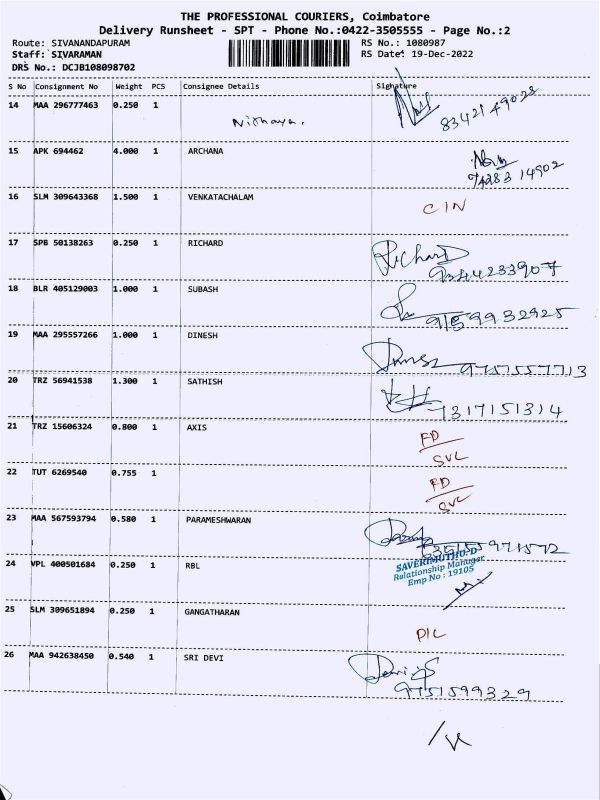 THE PROFESSIONAL COURIERS, Coimbatore
Delivery Runsheet - SPT - Phone No.:0422-3505555 - Page No.:2
Route: SIVANANDAPURAM RS No.: 1080987
Staff: SIVARAMAN RS Date: 19-Dec-2022
DRS No.: DCJB108098702
S No Consignment No Weight PCS Consignee Details Signature
14 MAA 296777463 0.250 1 Nithaya.
15 APK 694462 4.000 1 ARCHANA
16 SLM 309643368 1.500 1 VENKATACHALAM CIN
17 SPB 50138263 0.250 1 RICHARD Richard
18 BLR 405129003 1.000 1 SUBASH
9159932925
19 MAA 295557266 1.000 1 DINESH
9751557713
20 TRZ 56941538 1.300 1 SATHISH
7317151314
21 TRZ 15606324 0.800 1 AXIS FD
SVL
22 TUT 6269540 0.755 1 FD
SVL
23 MAA 567593794 0.580 1 PARAMESHWARAN
24 VPL 400501684 0.250 1 RBL SAVERIMUTHU.D
Relationship Manager
Emp No : 19105
25 SLM 309651894 0.250 1 GANGATHARAN
DIL
26 MAA 942638450 0.540 1 SRI DEVI
9751599329